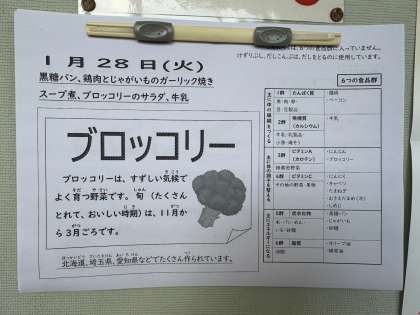 は、6つの食品群に入っていません。
けずりぶし、だしこんぶは、だしをとるのに使用しています。
1月28日(火)
黒糖パン、鶏肉とじゃがいものガーリック焼き
スープ煮、ブロッコリーのサラダ、牛乳
ブロッコリー
ブロッコリーは、すずしい気候で
よく育つ野菜です。旬(たくさん
とれて、おいしい時期)は、11月か
ら3月ごろです。
北海道、埼玉県、愛知県などでたくさん作られています。
6つの食品群
1群 たんぱく質
・鶏肉
・ベーコン
2群 無機質
(カルシウム)
・牛乳
牛乳・乳製品
3群 ビタミンA
(カロテン)
・にんじん
・ブロッコリー
緑黄色野菜
4群 ビタミンC
その他の野菜・果物
・にんにく
・キャベツ
・たまねぎ
・しめじ
5群 炭水化物
・黒糖パン
・じゃがいも
・砂糖
6群 脂質
・オリーブ油